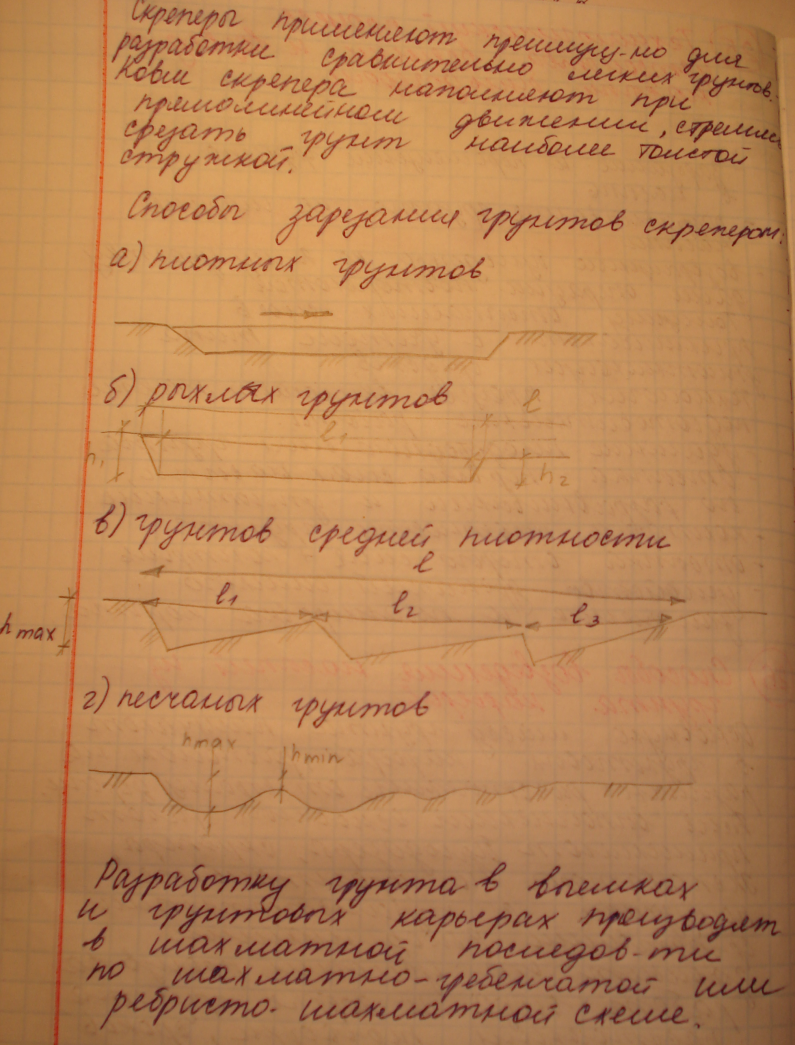 Скреперы применяют преимущ-но для
разработки сравнительно легких грунтов.
Ковш скрепера наполняют при
прямолинейном движении, стремясь
срезать грунт наиболее толстой
стружкой.
Способы зарезания грунтов скрепером:
а) плотных грунтов
б) рыхлых грунтов
l
l1
h1
h2
в) грунтов средней плотности
l
l1 l2 l3
h max
г) песчаных грунтов
hmax
hmin
Разработку грунта в выемках
и грунтовых карьерах производят
в шахматной последов-ти
по шахматно-гребенчатой или
ребристо-шахматной схеме.